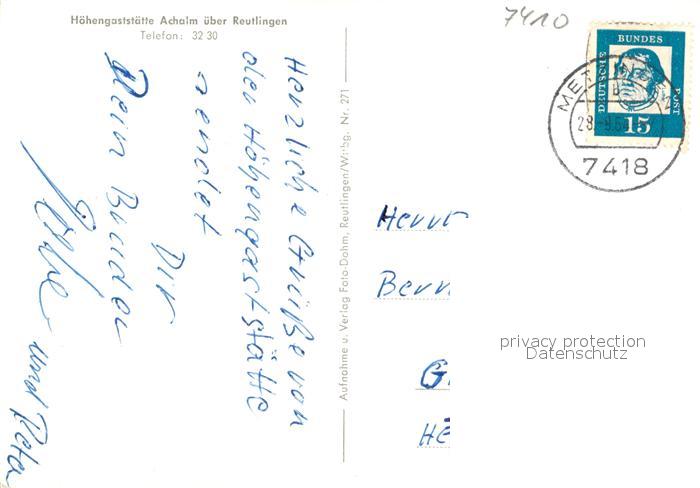 Höhengaststätte Achalm über Reutlingen
Telefon: 32 30
7410
DEUTSCHE BUNDES POST
15
7418
Herzliche Grüße von
der Höhengaststätte
sendet
Dir
Dein Bruder
und Reta
Aufnahme u. Verlag Foto-Dohm, Reutlingen/Wttbg. Nr. 271
Herrn
privacy protection
Datenschutz